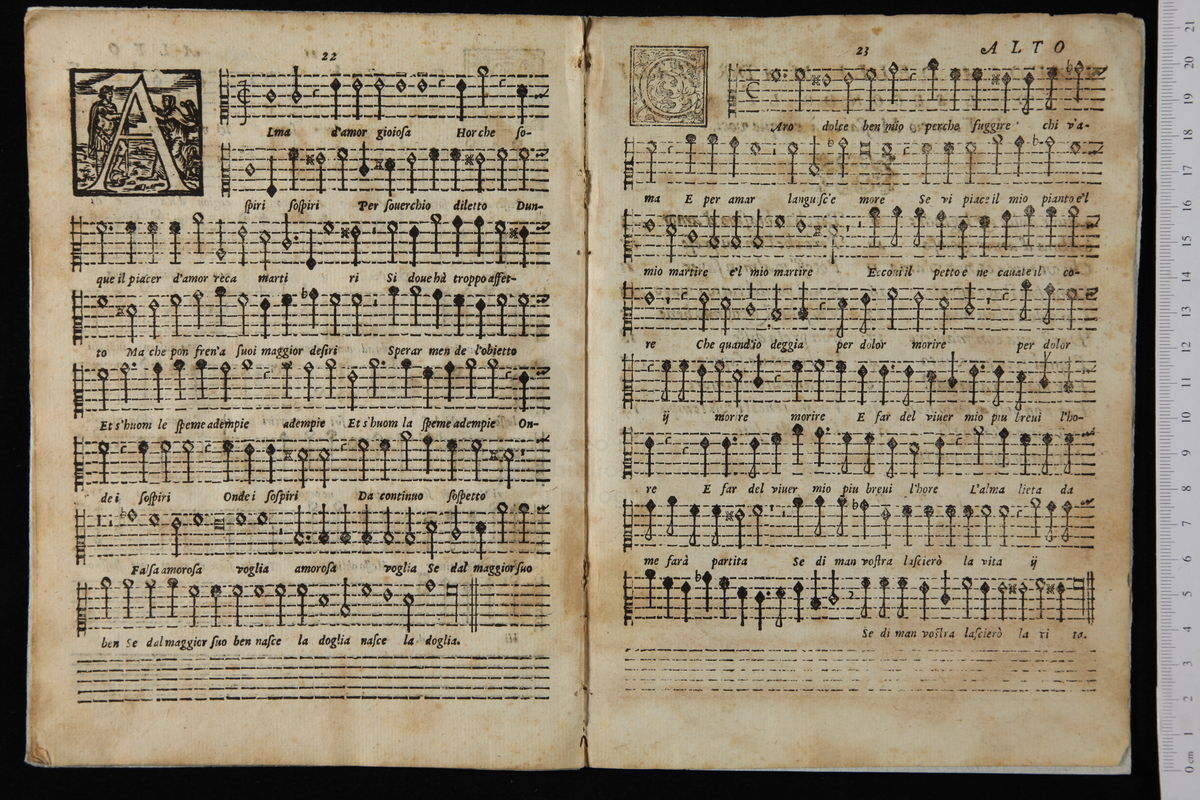 22
A Lma d'amor gioiosa Hor che so-
spiri sospiri Per souerchio diletto Dun-
que il piacer d'amor reca marti ri Si doue hà troppo affet-
to Ma che pon fren'a suoi maggior desiri Sperar men de l'obietto
Et s'huom le speme adempie adempie Et s'huom la speme adempie On-
de i sospiri Onde i sospiri Da continuo sospetto
Falsa amorosa voglia amorosa voglia Se dal maggior suo
ben Se dal maggior suo ben nasce la doglia nasce la doglia.
23 ALTO
C Aro dolce ben mio perche fuggire chi v'a-
ma E per amar langusc'e more Se vi piace il mio pianto e'l
mio martire e'l mio martire Eccoui il petto e ne cauate il co-
re Che quand'io deggia per dolor morire per dolor
ij morire morire E far del viuer mio piu breui l'ho-
re E far del viuer mio piu breui l'hore L'alma lieta da
me farà partita Se di man vostra lascierò la vita ij
Se di man vostra lascierò la vi ta.
0 cm 1 2 3 4 5 6 7 8 9 10 11 12 13 14 15 16 17 18 19 20 21